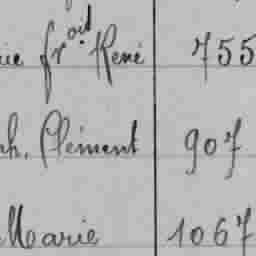 ie fr.oid René 755
ph. Clément 907
Marie 1067